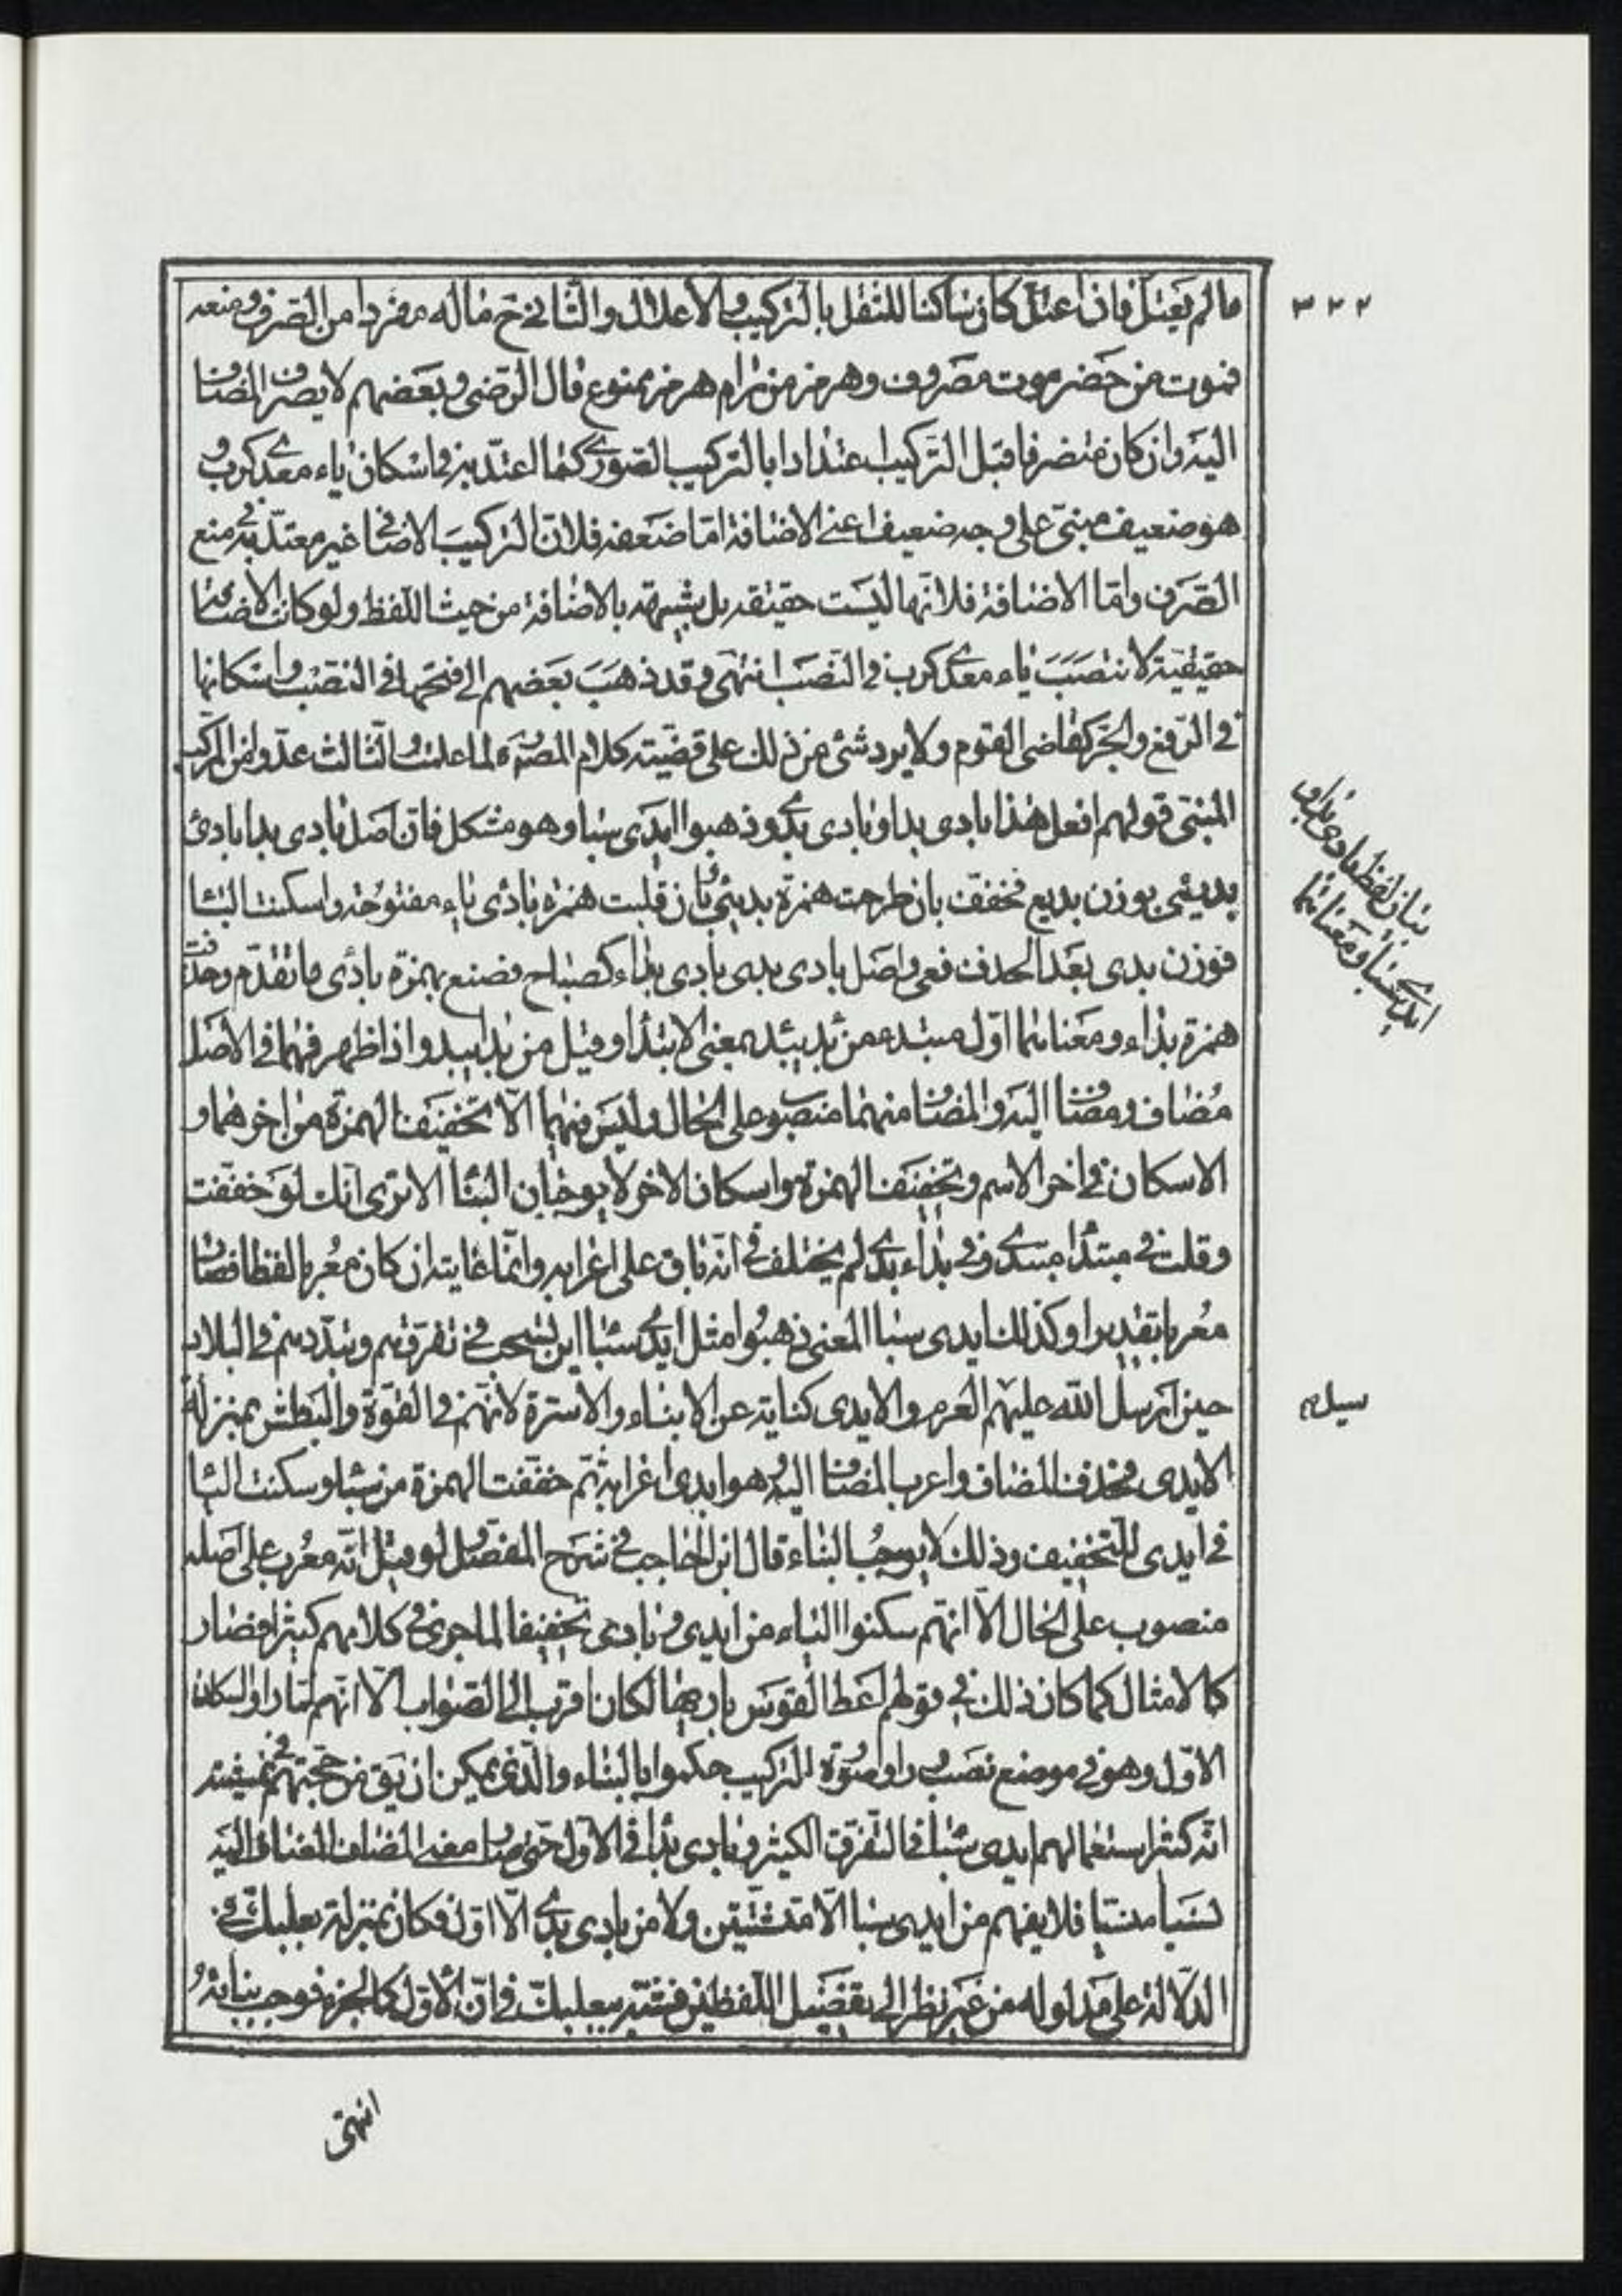 ٣٢٢
ما لم يعتلّ فان اعتلّ كان ساكنا للثقل بالتركيب والاعلال والثاني ح ما له مفردا من الصرف ومنعه
فموت من حضر موت مصروف وهرمز من رام هرمز ممنوع قال الرّضى وبعضهم لا يصرف المضاف
اليه وان كان منصرفا قبل التّركيب اعتدادا بالتركيب الصّورى كما اعتدّ به فى اسكان ياء معدى كرب و
هو ضعيف مبنىّ على وجه ضعيف اعنى الاضافة امّا ضعفه فلانّ التركيب الاضافى غير معتدّ به فى منع
الصّرف وامّا الاضافة فلانّها ليست حقيقه بل شبهّه بالاضافة من حيث اللّفظ ولو كانت الاضافة
حقيقيّة لانتصب ياء معدى كرب فى النّصب انتهى وقد ذهب بعضهم الى فتحها فى النّصب واسكانها
فى الرّفع والجرّ كقاضى القوم ولا يرد شئ من ذلك على قضيّته كلام المصنّف ره لما علمت والثّالث عدّوا من المركّب
المبنّى قولهم افعل هذا بادى بدا وبادى بدى وذهبوا ايدى سبا وهو مشكل فانّ اصل بادى بدا بادئ
بديئى بوزن بديع فخفّف بان طرحت همزة بديئى بان قلبت همزه بادئ ياء مفتوحة واسكنت الياء
فوزن بدى بعد الحذف فعى واصل بادى بدى بادى بداء كصباح فصنع بهمزة بادئ ما تقدّم وحذفت
همزة بداء ومعناهما اوّل مبتدء من بدء يبدء بمعنى الابتداء وقيل من بدا يبدو اذا ظهر فهما فى الاصل
مُضاف ومضاف اليه والمضاف منهما منصوب على الحال وليس فيهما الّا تخفيف الهمزة من اخرهما و
الاسكان فى اخر الاسم وتخفيف الهمزة واسكان الاخر لا يوجبان البناء الا ترى انّك لو خفّفت
وقلت فى مبتدا مبتدى وفى بداء بدى لم يختلف فى انّه باق على اعرابه وانّما غايته ان كان معُربا لفظا فصار
معُربا تقديرا وكذلك ايدى سبا المعنى ذهبُوا مثل ايدى سبا ابن يشجب فى تفرقهم وتبدّدهم فى البلاد
حين ارسل الله عليهم العرم والايدى كناية عن الابناء والاسرة لانّهم فى القوّة والبطش بمنزلة
سيله
الايدى فحذف المضاف واعرب المضاف اليه وهو ايدى اعرابه ثم خفّفت الهمزة من سبا وسكنت اليا
فى ايدى للتّخفيف وذلك لا يوجبُ البناء قال ابن الحاجب فى شرح المفصّل لو قيل انّه معُرب على اصله
منصوب على الحال الّا انّهم سكنوا الياء من ايدى وبادى تخفيفا لما جرى فى كلامهم كثيرا فصار
كالامثال كما كان ذلك فى قولهم اعط القوس باريها لكان اقرب الى الصّواب الّا انّهم لمّا راوا اسكان
الاوّل وهو فى موضع نصب وراوا صوُرة التركيب حكموا بالبناء والّذى يمكن ان يقوى من حجتهم فى تمشيته
انّه كثر استعمالهم ايدى سبا فى التّفرق الكثير وبادى بدا فى الاوّل حتى صار معنى المضاف والمضاف اليه
نسيا منسيا فلا يفهم من ايدى سبا الّا متشتّتين ولا من بادى بدى الّا اوّل فكان بمنزلة بعلبكّ فى
الدّلالة على مدلوله من غير نظر الى تفصيل اللّفظين فشبّه ببعلبكّ فى انّ الاوّل كالجزء فوجب بنائه و
بيان لفظ بادى بدى و
ايدى سبا ومعناهما
انتهى